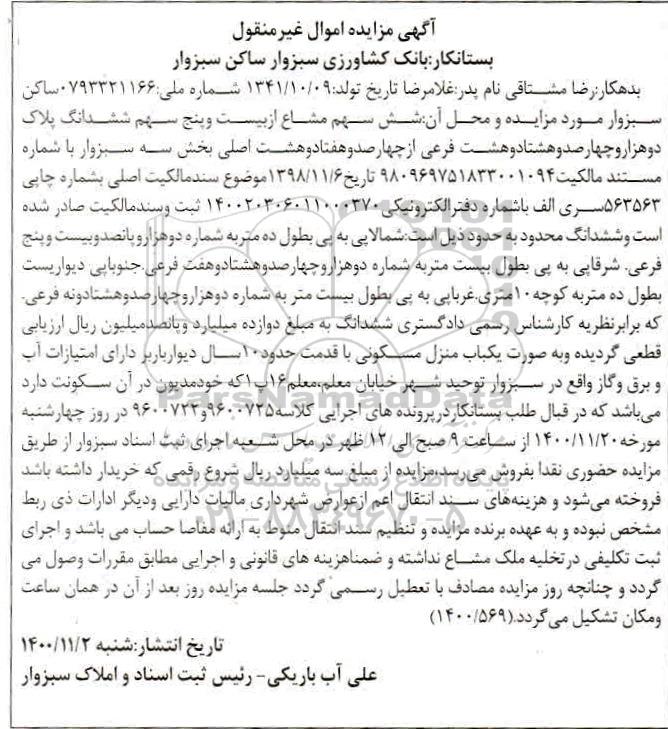 آگهی مزایده اموال غیرمنقول
بستانکار:بانک کشاورزی سبزوار ساکن سبزوار
بدهکار:رضا مشتاقی نام پدر:غلامرضا تاریخ تولد:۱۳۴۱/۱۰/۰۹ شماره ملی:۰۷۹۳۳۲۱۱۶۶ساکن
سبزوار مورد مزایده و محل آن:شش سهم مشاع ازبیست وپنج سهم ششدانگ پلاک
دوهزاروچهارصدوهشتادوهشت فرعی ازچهارصدوهفتادوهشت اصلی بخش سه سبزوار با شماره
مستند مالکیت۹۸۰۹۶۹۷۵۱۸۳۳۰۰۱۰۹۴ تاریخ۱۳۹۸/۱۱/۶موضوع سندمالکیت اصلی بشماره چاپی
۵۶۳۵۶۳سری الف باشماره دفترالکترونیکی۱۴۰۰۲۰۳۰۶۰۱۱۰۰۰۳۷۰ ثبت وسندمالکیت صادر شده
است وششدانگ محدود به حدود ذیل است:شمالاپی به پی بطول ده متربه شماره دوهزاروپانصدوبیست و پنج
فرعی. شرقاپی به پی بطول بیست متربه شماره دوهزاروچهارصدوهشتادوهفت فرعی.جنوباپی دیواریست
بطول ده متربه کوچه۱۰متری.غرباپی به پی بطول بیست متر به شماره دوهزاروچهارصدوهشتادونه فرعی.
که برابرنظریه کارشناس رسمی دادگستری ششدانگ به مبلغ دوازده میلیارد وپانصدمیلیون ریال ارزیابی
قطعی گردیده وبه صورت یکباب منزل مسکونی با قدمت حدود۱۰سال دیوارباربر دارای امتیازات آب
و برق وگاز واقع در سبزوار توحید شهر خیابان معلم،معلم۱۶پ۱که خودمدیون در آن سکونت دارد
می‌باشد که در قبال طلب بستانکاردرپرونده های اجرایی کلاسه۹۶۰۰۷۲۵و۹۶۰۰۷۲۳ در روز چهارشنبه
مورخه۱۴۰۰/۱۱/۲۰ از ساعت ۹ صبح الی۱۲ظهر در محل شعبه اجرای ثبت اسناد سبزوار از طریق
مزایده حضوری نقدا بفروش می‌رسد،مزایده از مبلغ سه میلیارد ریال شروع رقمی که خریدار داشته باشد
فروخته می‌شود و هزینه‌های سند انتقال اعم ازعوارض شهرداری مالیات دارایی ودیگر ادارات ذی ربط
مشخص نبوده و به عهده برنده مزایده و تنظیم سند انتقال منوط به ارائه مفاصا حساب می باشد و اجرای
ثبت تکلیفی درتخلیه ملک مشاع نداشته و ضمناهزینه های قانونی و اجرایی مطابق مقررات وصول می
گردد و چنانچه روز مزایده مصادف با تعطیل رسمی گردد جلسه مزایده روز بعد از آن در همان ساعت
ومکان تشکیل می‌گردد.(۱۴۰۰/۵۶۹)
تاریخ انتشار:شنبه ۱۴۰۰/۱۱/۲
علی آب باریکی- رئیس ثبت اسناد و املاک سبزوار
ParsNamadData
۰۲۱-۸۸۳۴۹۶۷۰-۵